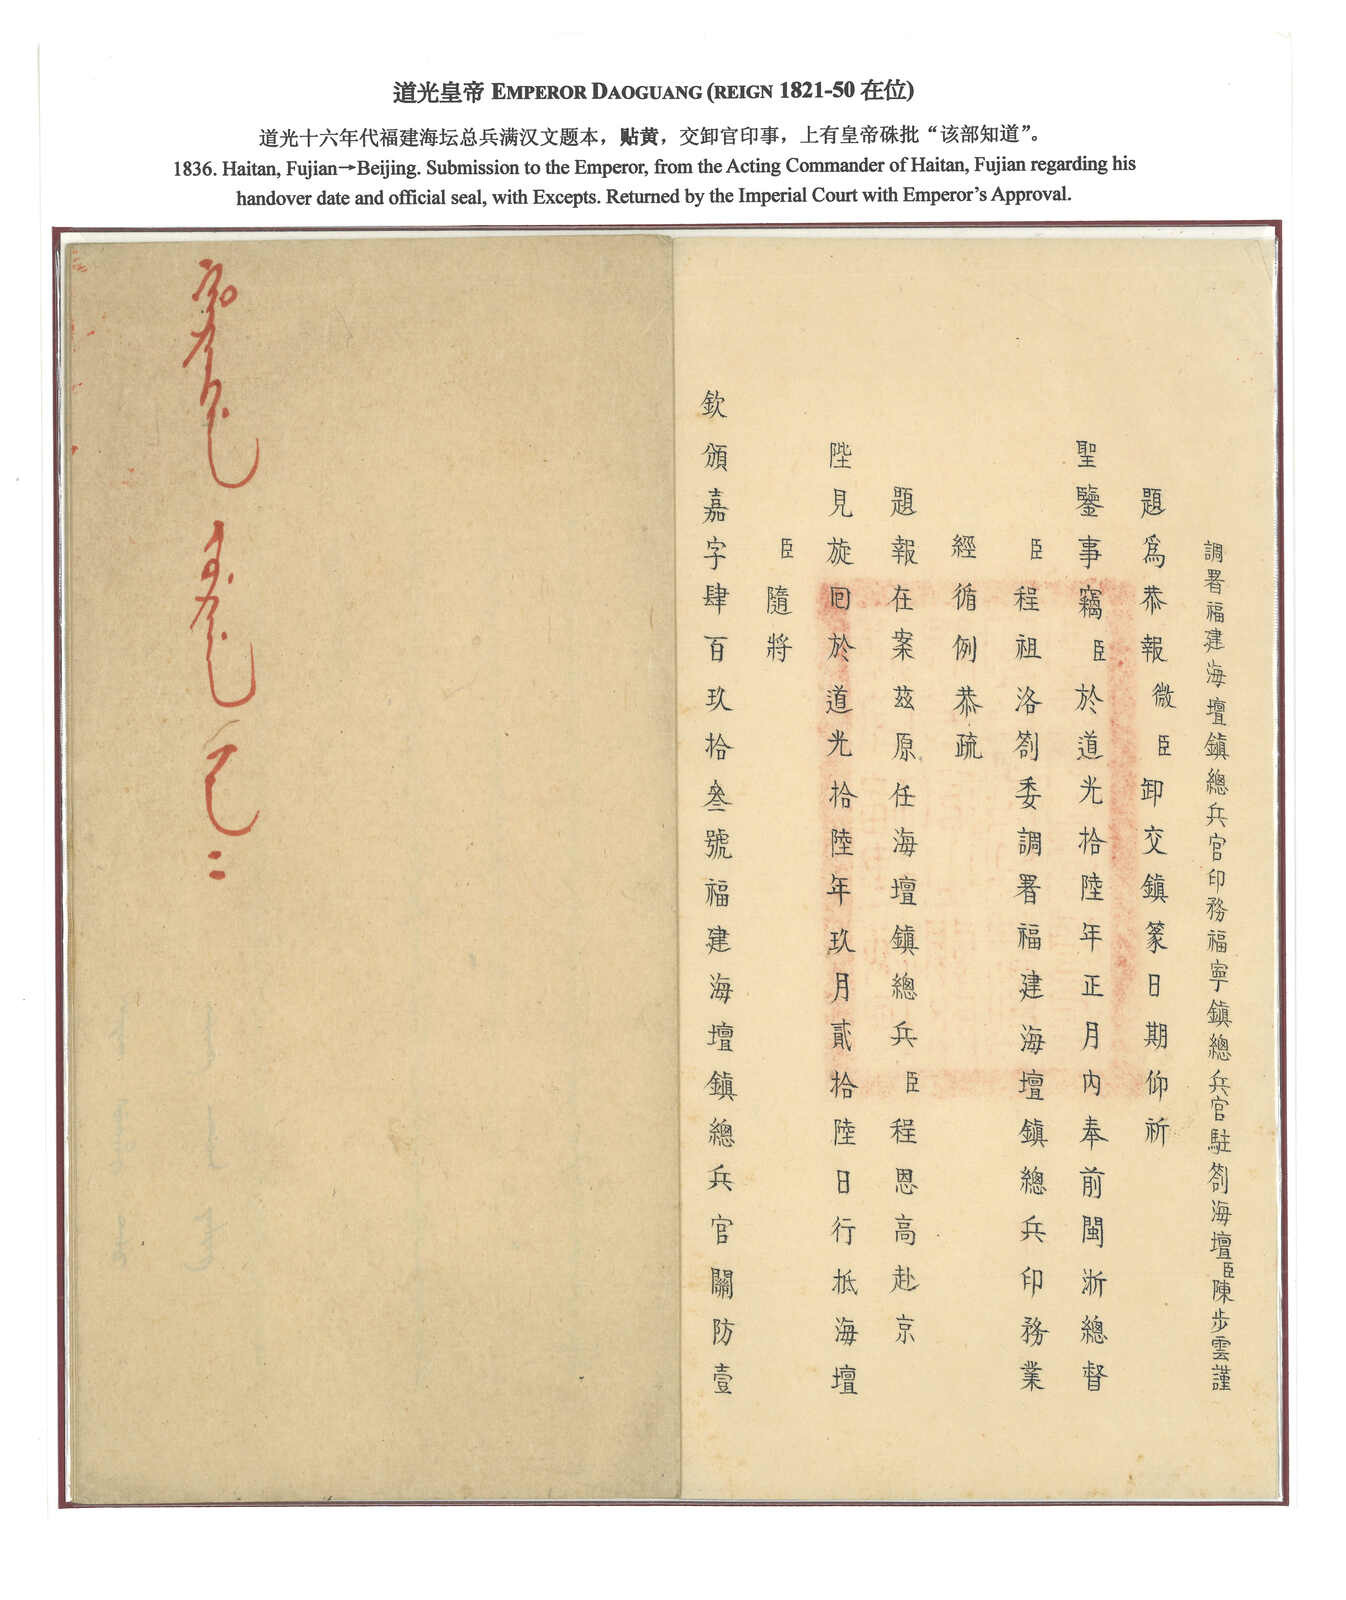 道光皇帝 EMPEROR DAOGUANG (REIGN 1821-50 在位)
道光十六年代福建海坛总兵满汉文题本，贴黄，交卸官印事，上有皇帝硃批“该部知道”。
1836. Haitan, Fujian→Beijing. Submission to the Emperor, from the Acting Commander of Haitan, Fujian regarding his
handover date and official seal, with Excepts. Returned by the Imperial Court with Emperor’s Approval.
調署福建海壇鎮總兵官印務福寧鎮總兵官駐劄海壇臣陳步雲謹
題爲恭報微臣卸交鎮篆日期仰祈
聖鑒事竊臣於道光拾陸年正月內奉前閩浙總督
臣程祖洛劄委調署福建海壇鎮總兵印務業
經循例恭疏
題報在案茲原任海壇鎮總兵臣程恩高赴京
陛見旋回於道光拾陸年玖月貳拾陸日行抵海壇
臣隨將
欽頒嘉字肆百玖拾叄號福建海壇鎮總兵官關防壹